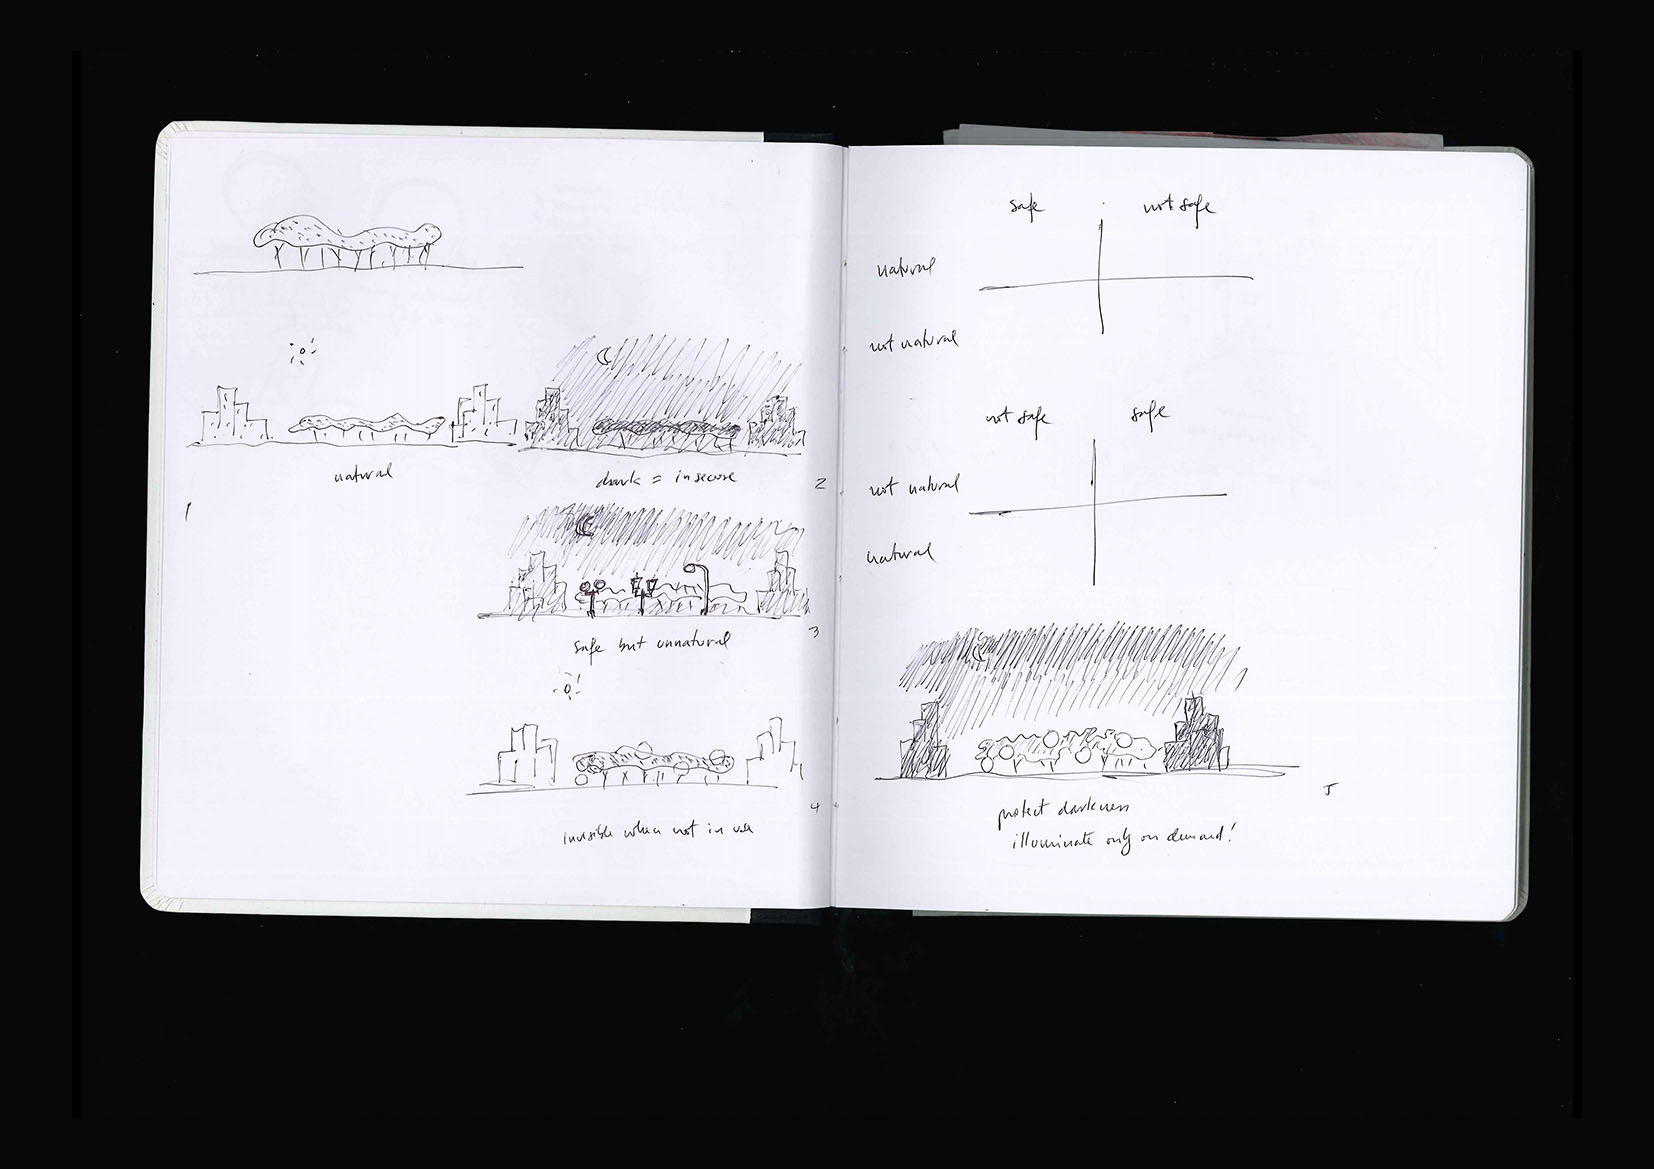 natural
dark = insecure
1
2
safe but unnatural
3
4
invisible when not in use
safe not safe
natural
not natural
not safe safe
not natural
natural
5
protect darkness
illuminate only on demand!